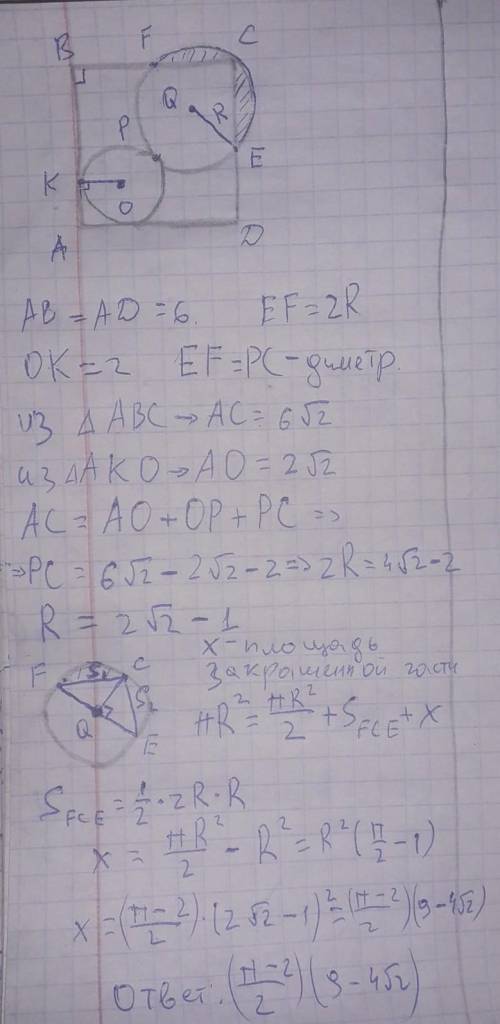 B F C
Q R
P E
K O
A D
AB = AD = 6. EF = 2R
OK = 2 EF = PC - диметр.
из △ ABC → AC = 6√2
из △ AKO → AO = 2√2
AC = AO + OP + PC ⇒
⇒ PC = 6√2 - 2√2 - 2 ⇒ 2R = 4√2 - 2
R = 2√2 - 1
x - площадь
закрашенной части
F S₁ C S₂ Q E
πR² = πR²/2 + S_FCE + x
S_FCE = 1/2 · 2R · R
x = πR²/2 - R² = R² (π/2 - 1)
x = (π-2/2) · (2√2 - 1)² = (π-2/2) (9 - 4√2)
Ответ: (π-2/2) (9 - 4√2)